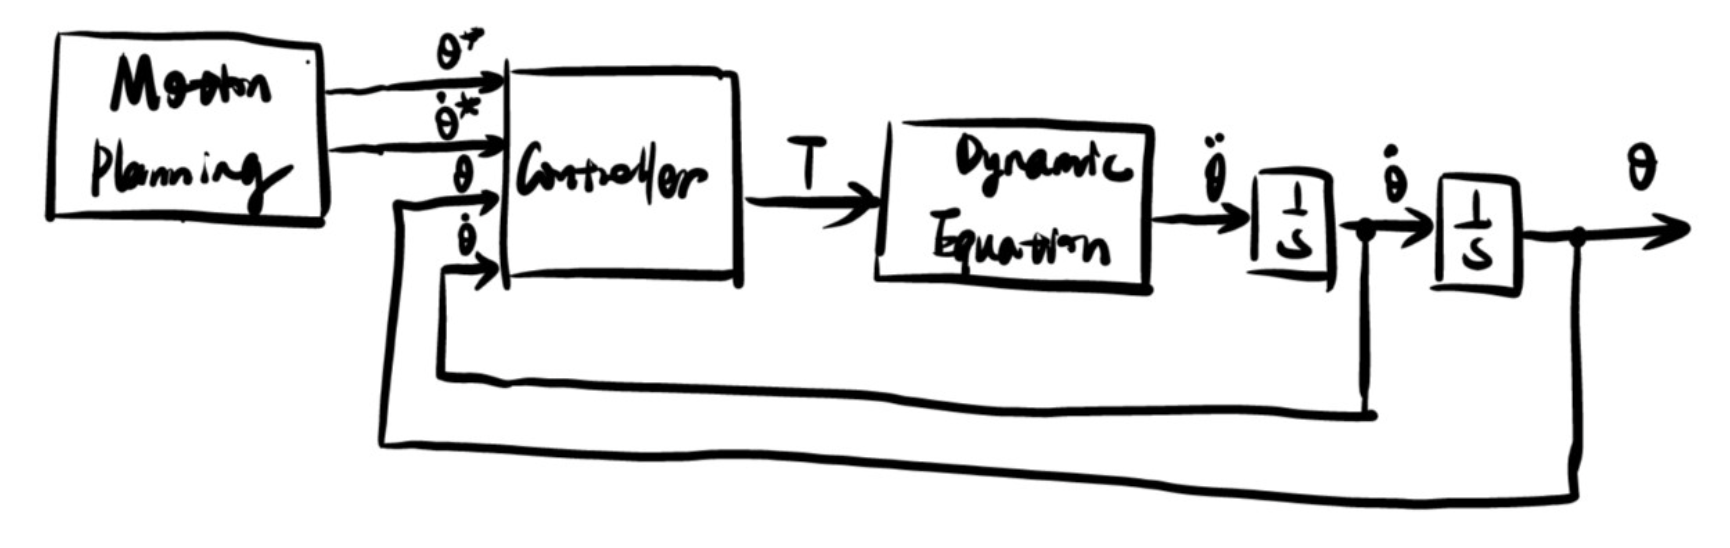 Motion
Planning
θ*
θ̇*
θ
θ̇
Controller
T
Dynamic
Equation
θ̈
1
s
θ̇
1
s
θ